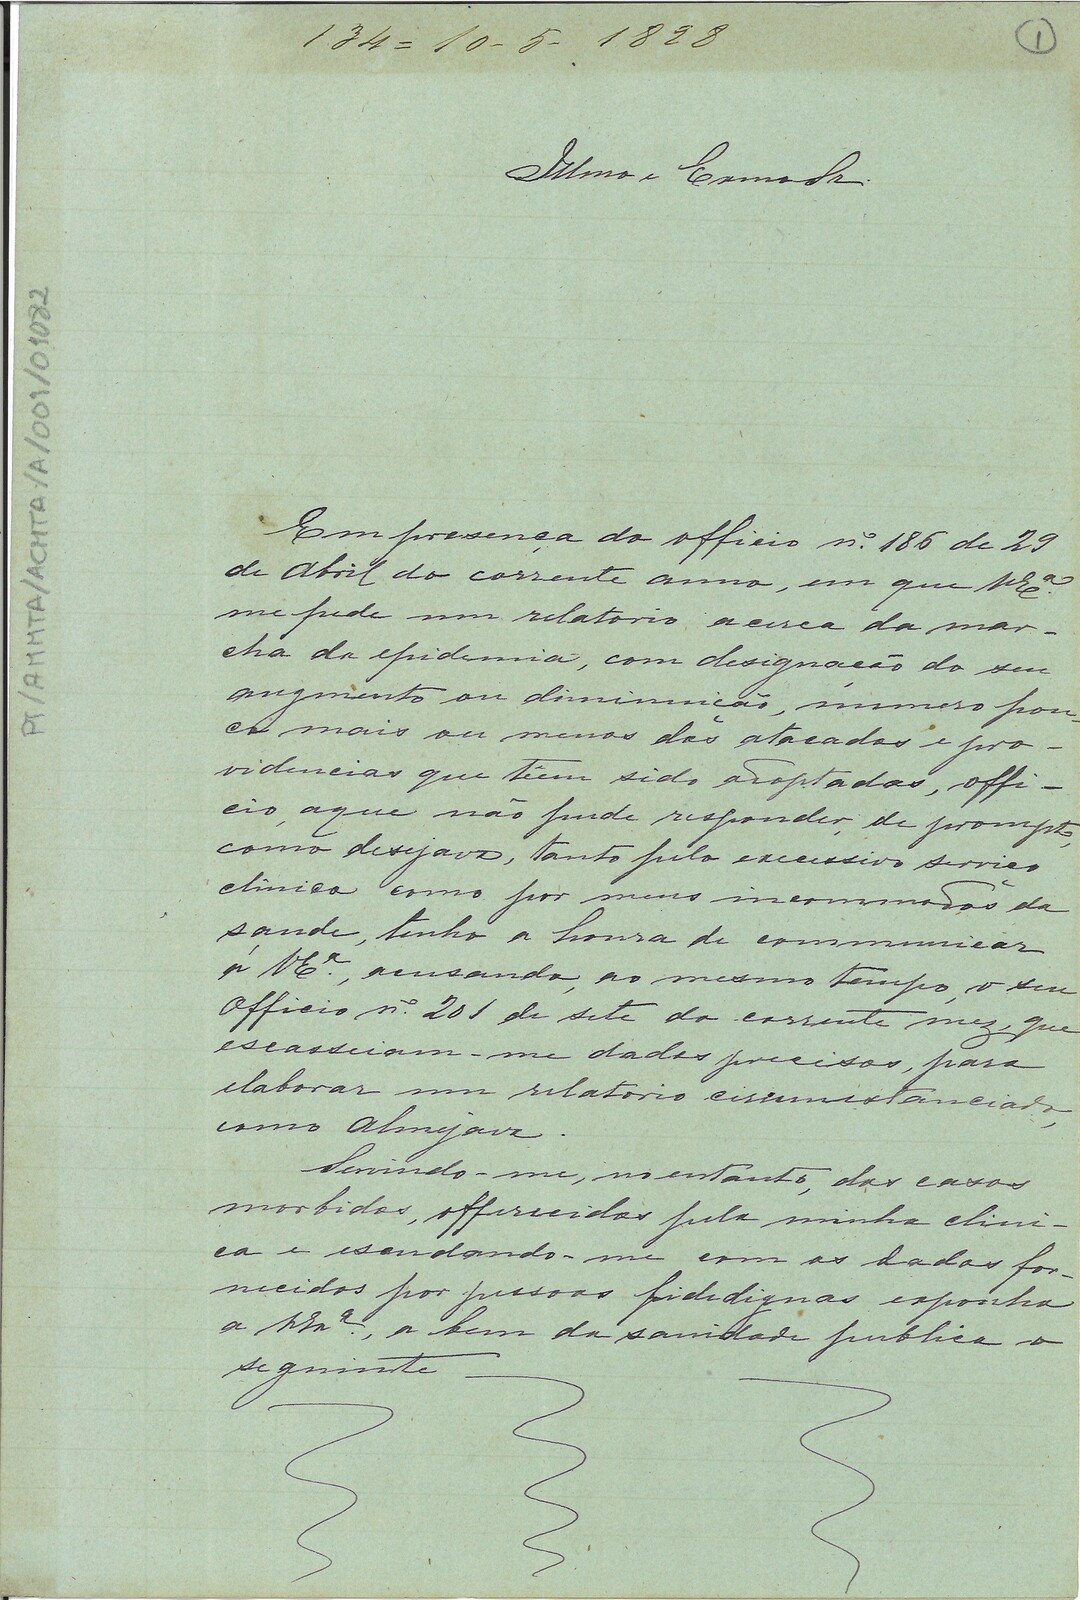 134 = 10 - 5 - 1898
1
Illmo e Exmo Sr.
PT/AMMTA/ACMTA/A/001/01082
Em presença do officio nº. 186 de 29
de Abril do corrente anno, em que VEª.
me pede um relatorio acerca da mar-
cha da epidemia, com designação do seu
augmento ou diminuição, numero pou-
co mais ou menos dos atacados e pro-
videncias que têem sido adoptadas, offi-
cio, a que não pude responder, de prompto,
como desejava, tanto pelo excessivo serviço
clinico como por meus incommodos da
saude, tenho a honra de communicar
á VEª., acusando, ao mesmo tempo, o seu
Officio nº. 201 de sete do corrente mez, que
escasseiam-me dados precisos, para
elaborar um relatorio circumstanciado,
como Almejava.
Servindo-me, no entanto, dos casos
morbidos, offerecidos pela minha clini-
ca e escudando-me com os dados for-
necidos por pessoas fidedignas exponho
a VExª., a bem da sanidade publica o
seguinte